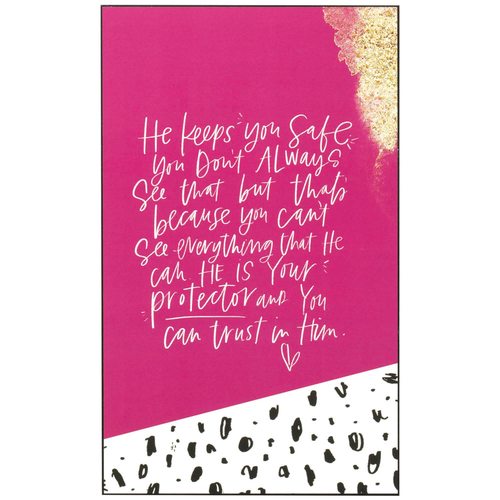 He keeps you Safe.
You Don't ALWAYS
See that but that's
because you can't
See everything that He
can. HE IS Your
protector and You
can trust in Him.